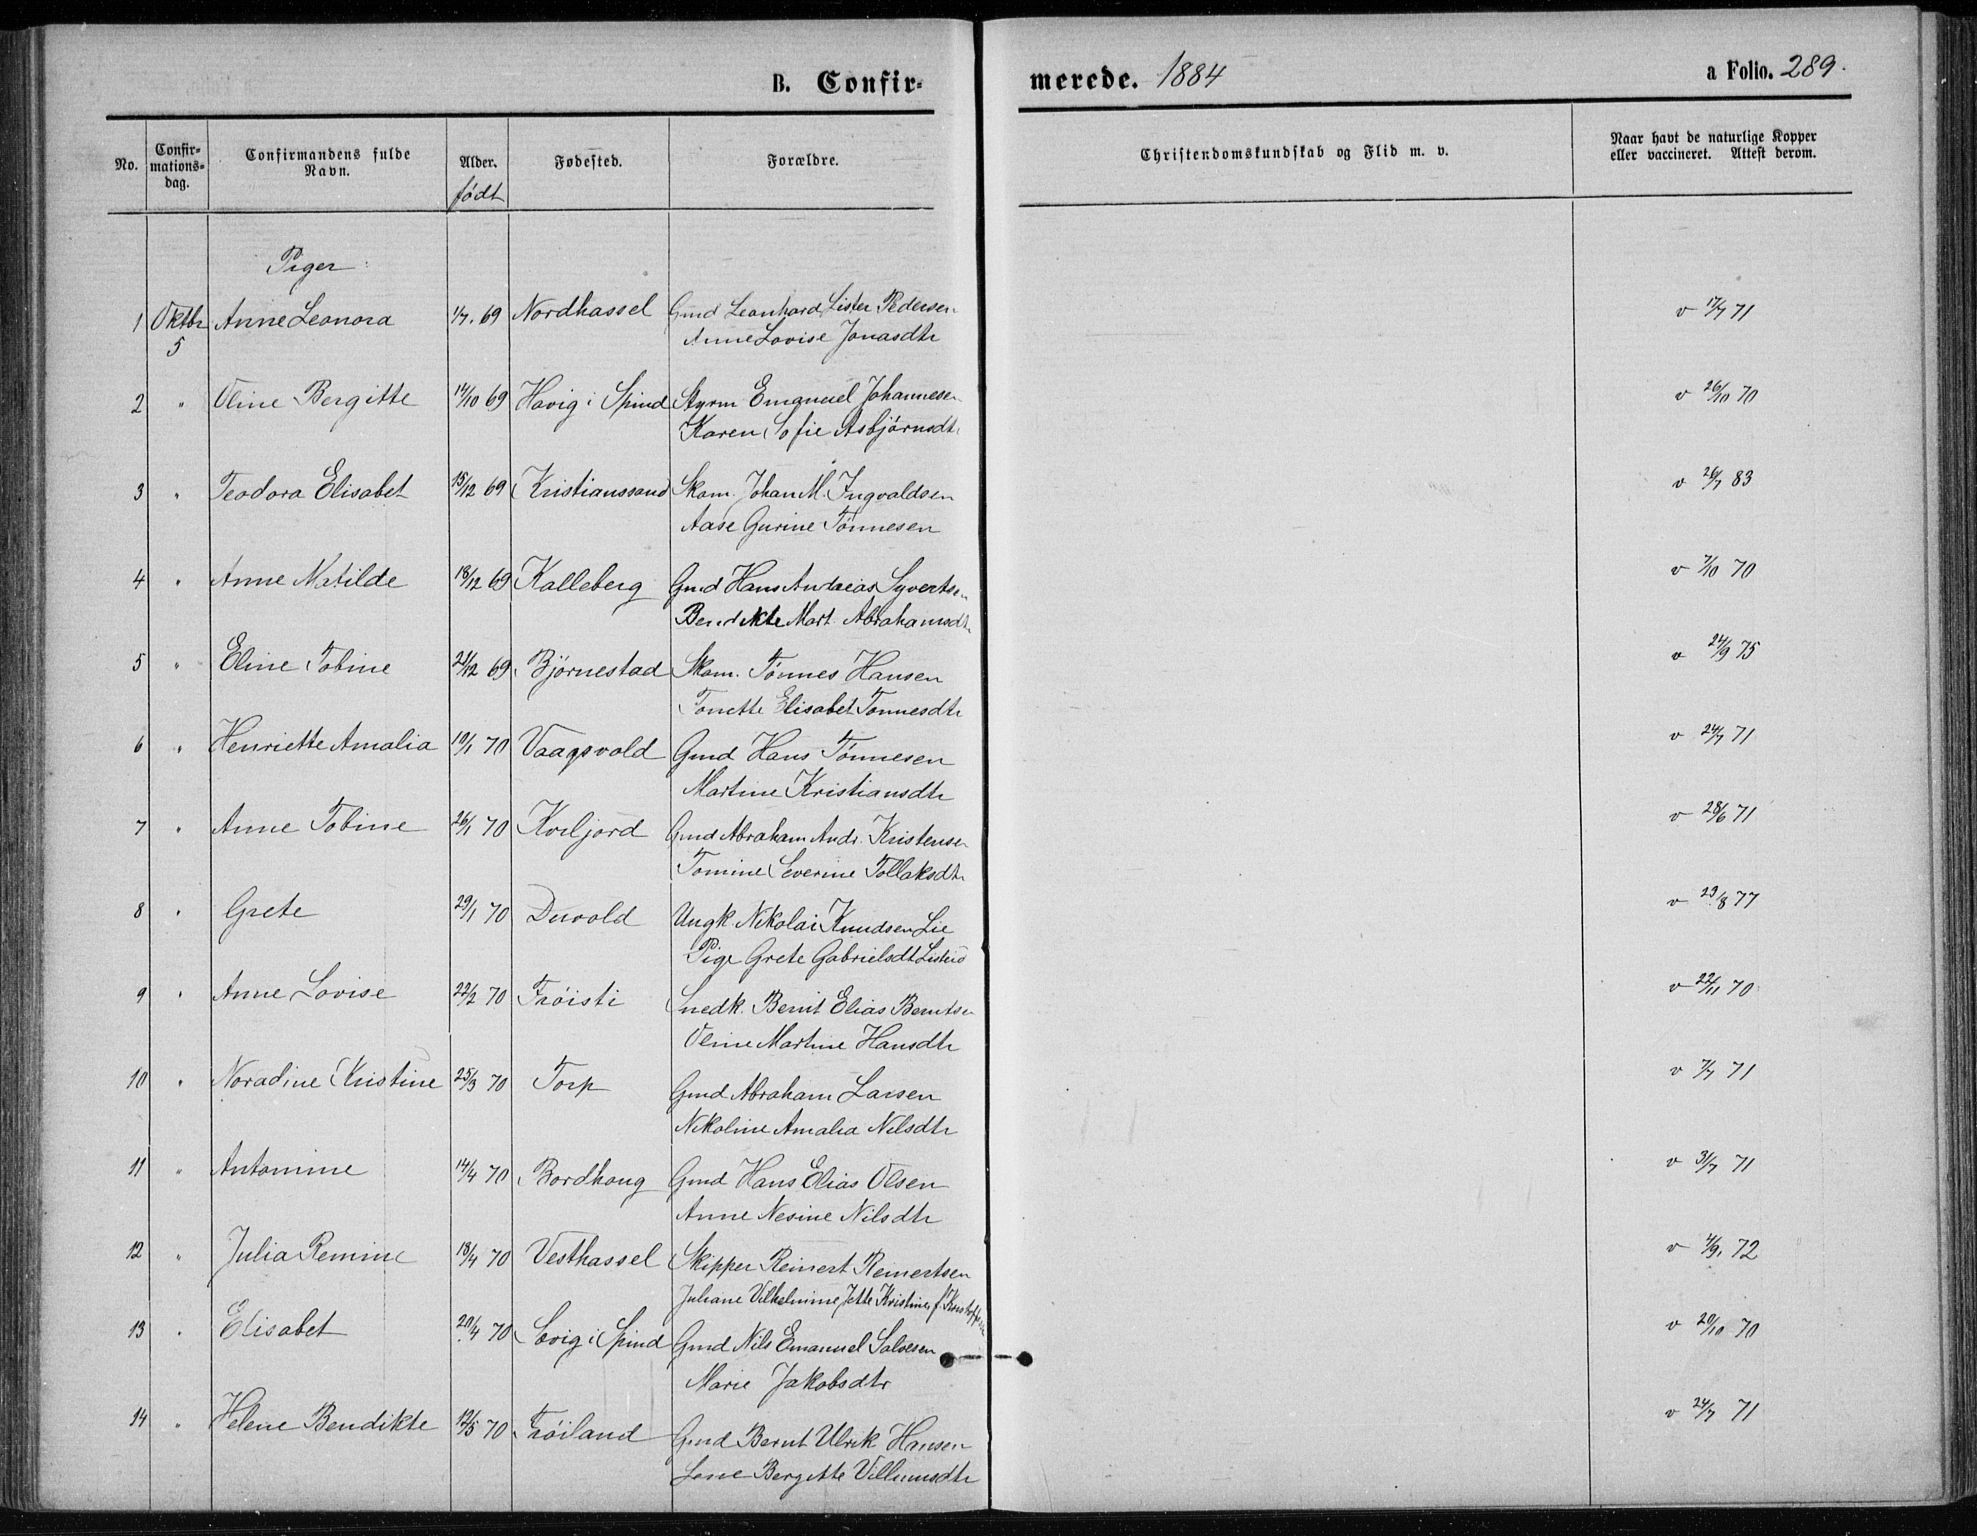 B. Confir-
merede. 1884
a Folio. 289.
No.
Confir-
mations-
dag.
Confirmandens fulde
Navn.
Alder.
født
Fødested.
Forældre.
Christendomskundskab og Flid m. v.
Naar havt de naturlige Kopper
eller vaccineret. Attest derom.
Piger
1 Oktbr Anne Leonora 1/7. 69 Nordhassel Gmd Leonhard Lister Pedersen v 17/7 71
5 Anne Lovise Jonasdtr
2 " Oline Bergitte 14/10 69 Havig i Spind Styrm Emanuel Johannesen v 26/10 70
Karen Sofie Asbjörnsdtr
3 " Teodora Elisabet 15/12 69 Kristianssand Skom. Johan M. Ingvaldsen v 26/7 83
Aase Gurine Tönnesen
4 " Anne Matilde 18/12 69 Kalleberg Gmd Hans Andreas Syvertsen v 7/10 70
Bendikte Mart. Abrahamsdtr
5 " Eline Tobine 21/12 69 Björnestad Skom. Tönnes Hansen v 24/9 75
Tonette Elisabet Tönnesdtr
6 " Henriette Amalia 10/1 70 Vaagsvold Gmd Hans Tönnesen v 24/7 71
Martine Kristiansdtr
7 " Anne Tobine 26/1 70 Kviljord Gmd Abraham Andr. Kristensen v 28/6 71
Tomine Severine Tollaksdtr
8 " Grete 29/1 70 Duvold Ungk. Nikolai Knudsen Lie v 23/8 77
Pige Grete Gabrielsdt
9 " Anne Lovise 22/2 70 Tröisti Snedk. Bernt Elias Berntsen v 22/11 70
Oline Martine Hansdtr
10 " Noradine Kristine 25/3 70 Torp Gmd Abraham Larsen v 7/7 71
Nikoline Amalia Nilsdtr
11 " Antomine 14/4 70 Bordhaug Gmd Hans Elias Olsen v 31/7 71
Anne Nesine Nilsdtr
12 " Julia Remine 18/4 70 Vesthassel Skipper Reinert Reinertsen v 4/9. 72
Juliane Vilhelmine Jette Kristine f.
13 " Elisabet 20/4 70 Lovig i Spind Gmd Nils Emanuel Salvesen v 20/10 70
Marie Jakobsdtr
14 " Helene Bendikte 12/5 70 Tröiland Gmd Bernt Ulrik Hansen v 24/7 71
Lene Bergitte Villumsdtr